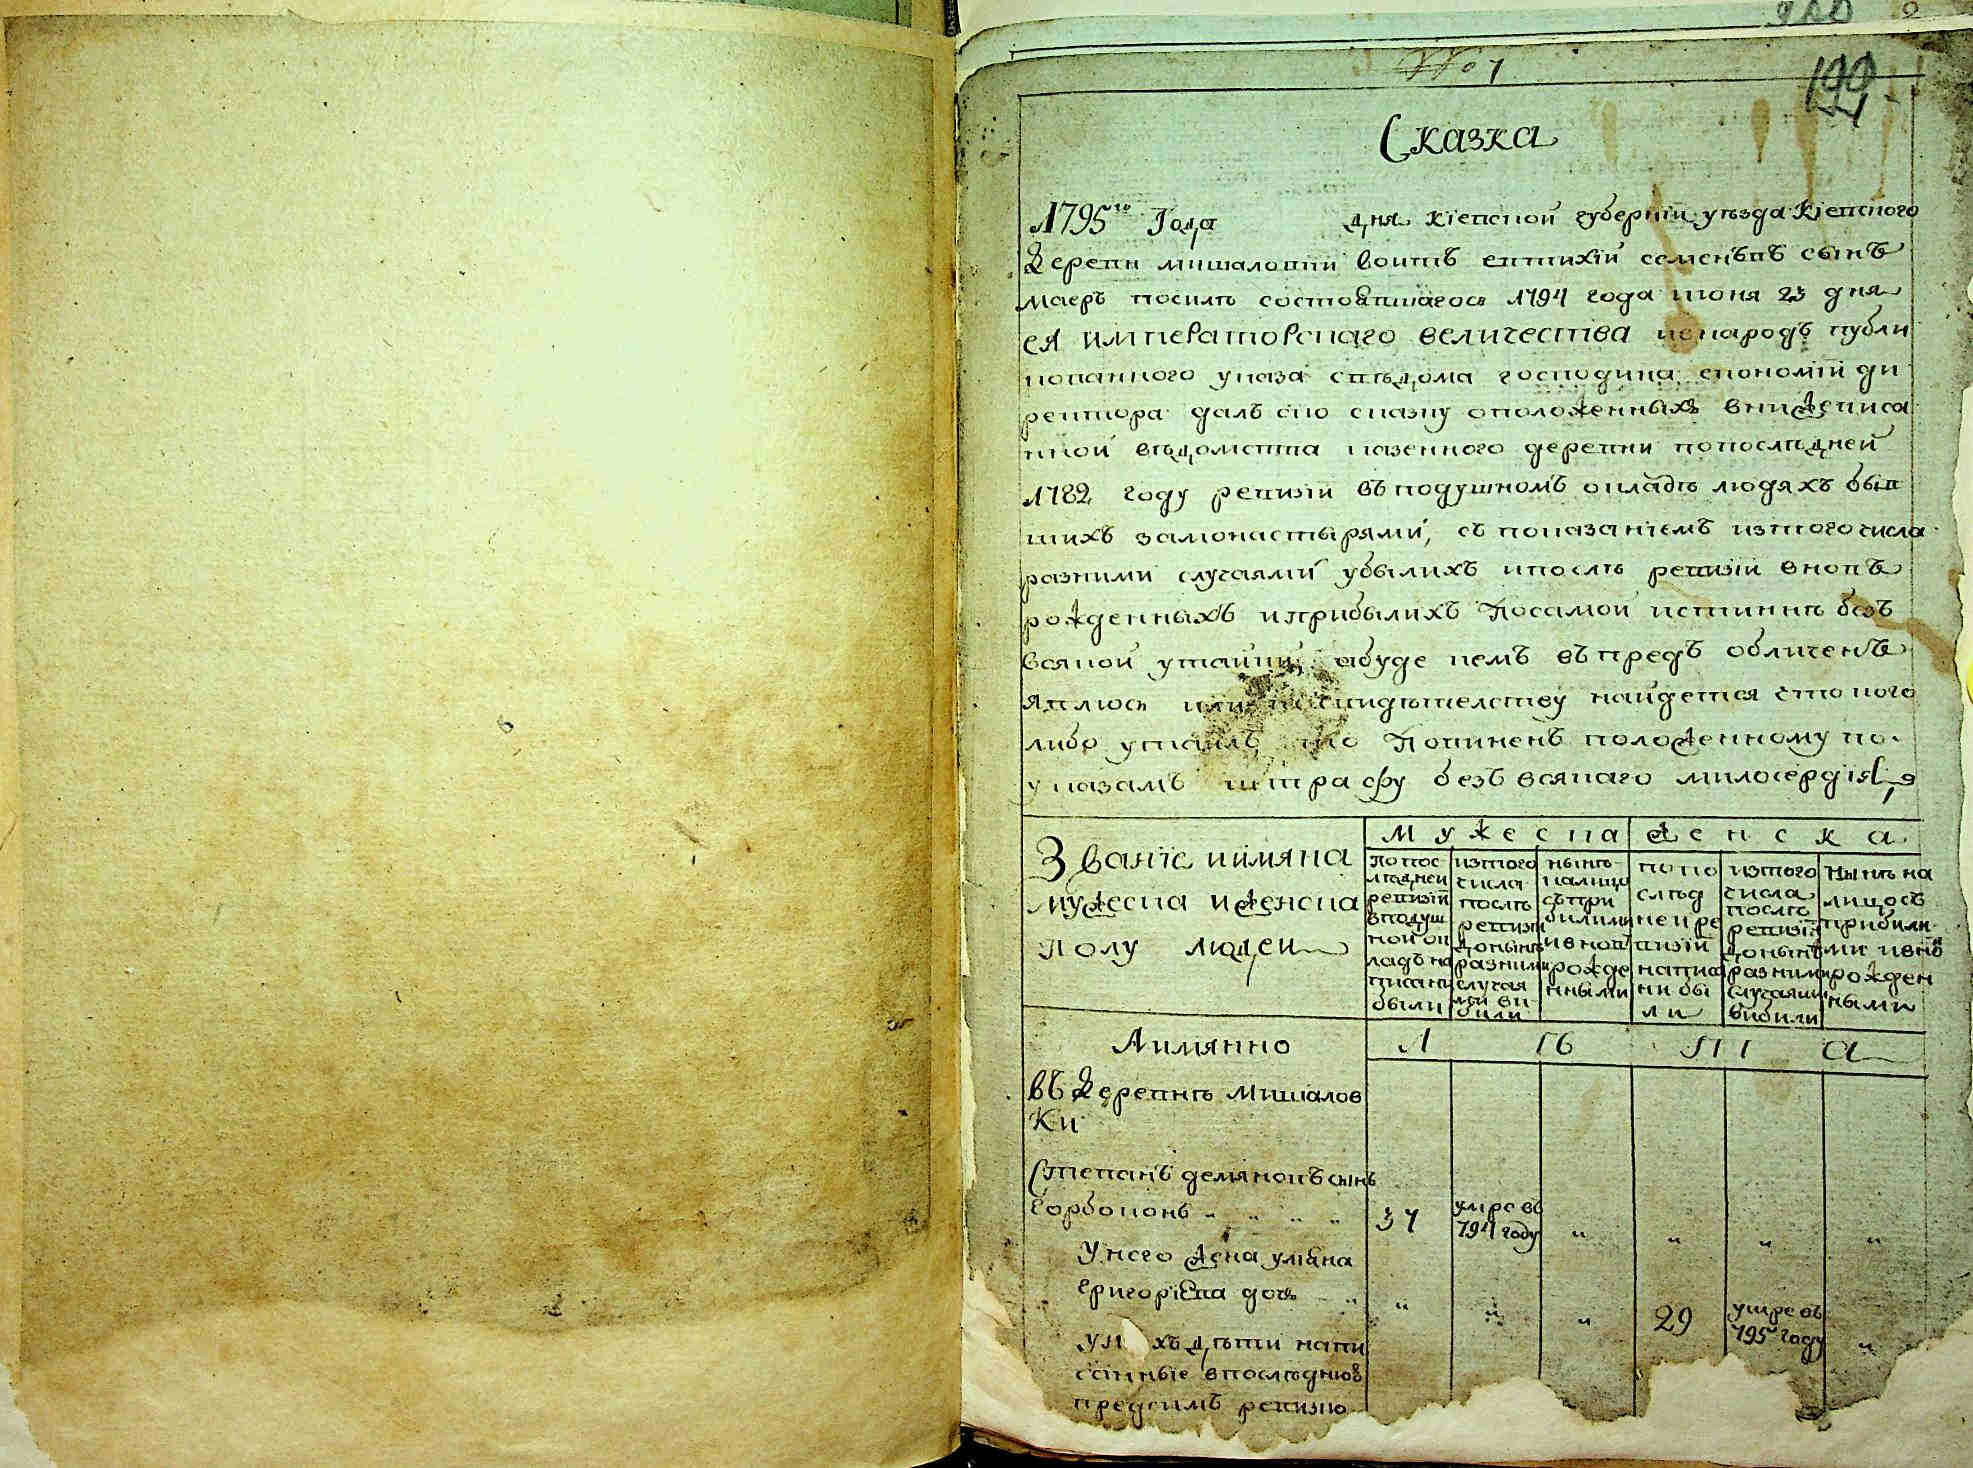 No 1
199
Сказка
1795го Года дня кіевской губерніи уѣзда Кіевского
Деревни мишаловки воитъ евтихій семеновъ сынъ
маеръ посилѣ состоявшагося 1794 года июня 23 дня
ея императорскаго величества ѵ народъ публи
кованного указа сѣдома господина економіи ди
ректора далъ сию сказку ополоѣженныхъ внижеписа
нной вѣдомства казенного деревни попослѣдней
1782 году ревизіи въ подушномъ окладѣ людяхъ быв
шихъ замонастырями, съ показаніемъ изтого числа
разними случаями убылихъ ипослѣ ревизіи вновъ
рожденныхъ иприбылихъ Посамой истиннѣ безъ
всякой утайки, абуде кемъ въ предъ обличенъ
явлюсь или по свидѣтелству найдется что кого
либо утаилъ то Повиненъ положенному по
указамъ штрафу безъ всякаго милосердія
Званіе иимяна
мужеска иженска
полу людей
мужеска
женска
попос
лѣдней
ревизіи
вподуш
ной ок
ладъ на
писани
были
изтого
числа
послѣ
ревизіи
донынѣ
разними
случая
ми ви
били
нынѣ
налицо
съпри
билими
ивновъ
рожде
нными
попо
слѣд
ней ре
визіи
написа
ни бы
ли
изтого
числа
послѣ
ревизіи
донынѣ
разними
случаями
вибили
Нынѣ на
лицосъ
прибили
ми ивно
рожден
ными
Аимянно
Л ѣ т а
въ Деревнѣ мишалов
ки
Степанъ демяновъ синъ
Горбоконь " " " "
37
умре въ
794 году
" " " "
У него жена уляна
григоріева дочь "
" " "
29
умре въ
795 году
"
у н хъ дѣти напи
санные впослѣднюю
предсимъ ревизию